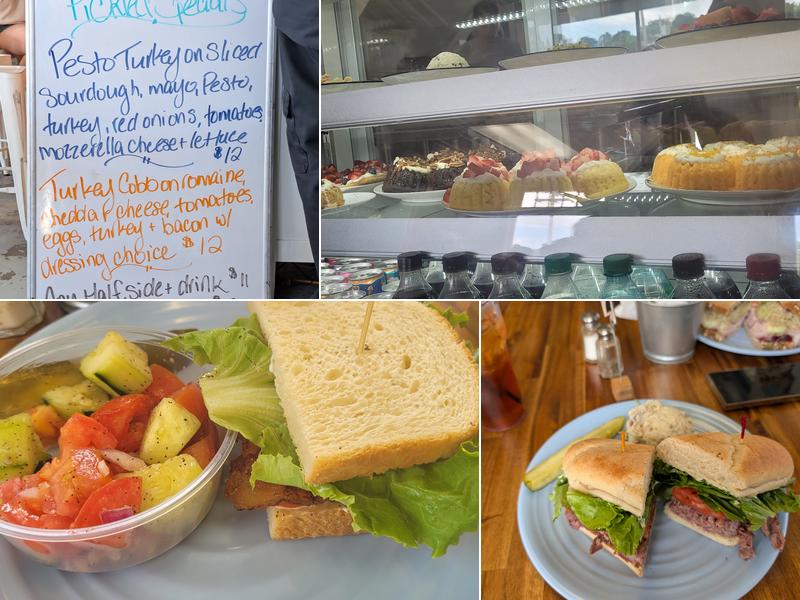 Pickled Specials
Pesto Turkey on Sliced
Sourdough, mayo, Pesto,
turkey, red onions, tomatoes,
mozzerella cheese + lettuce
$12
Turkey Cobb on romaine,
cheddar cheese, tomatoes,
eggs, turkey + bacon w/
dressing choice $12
Any Half, side + drink $11